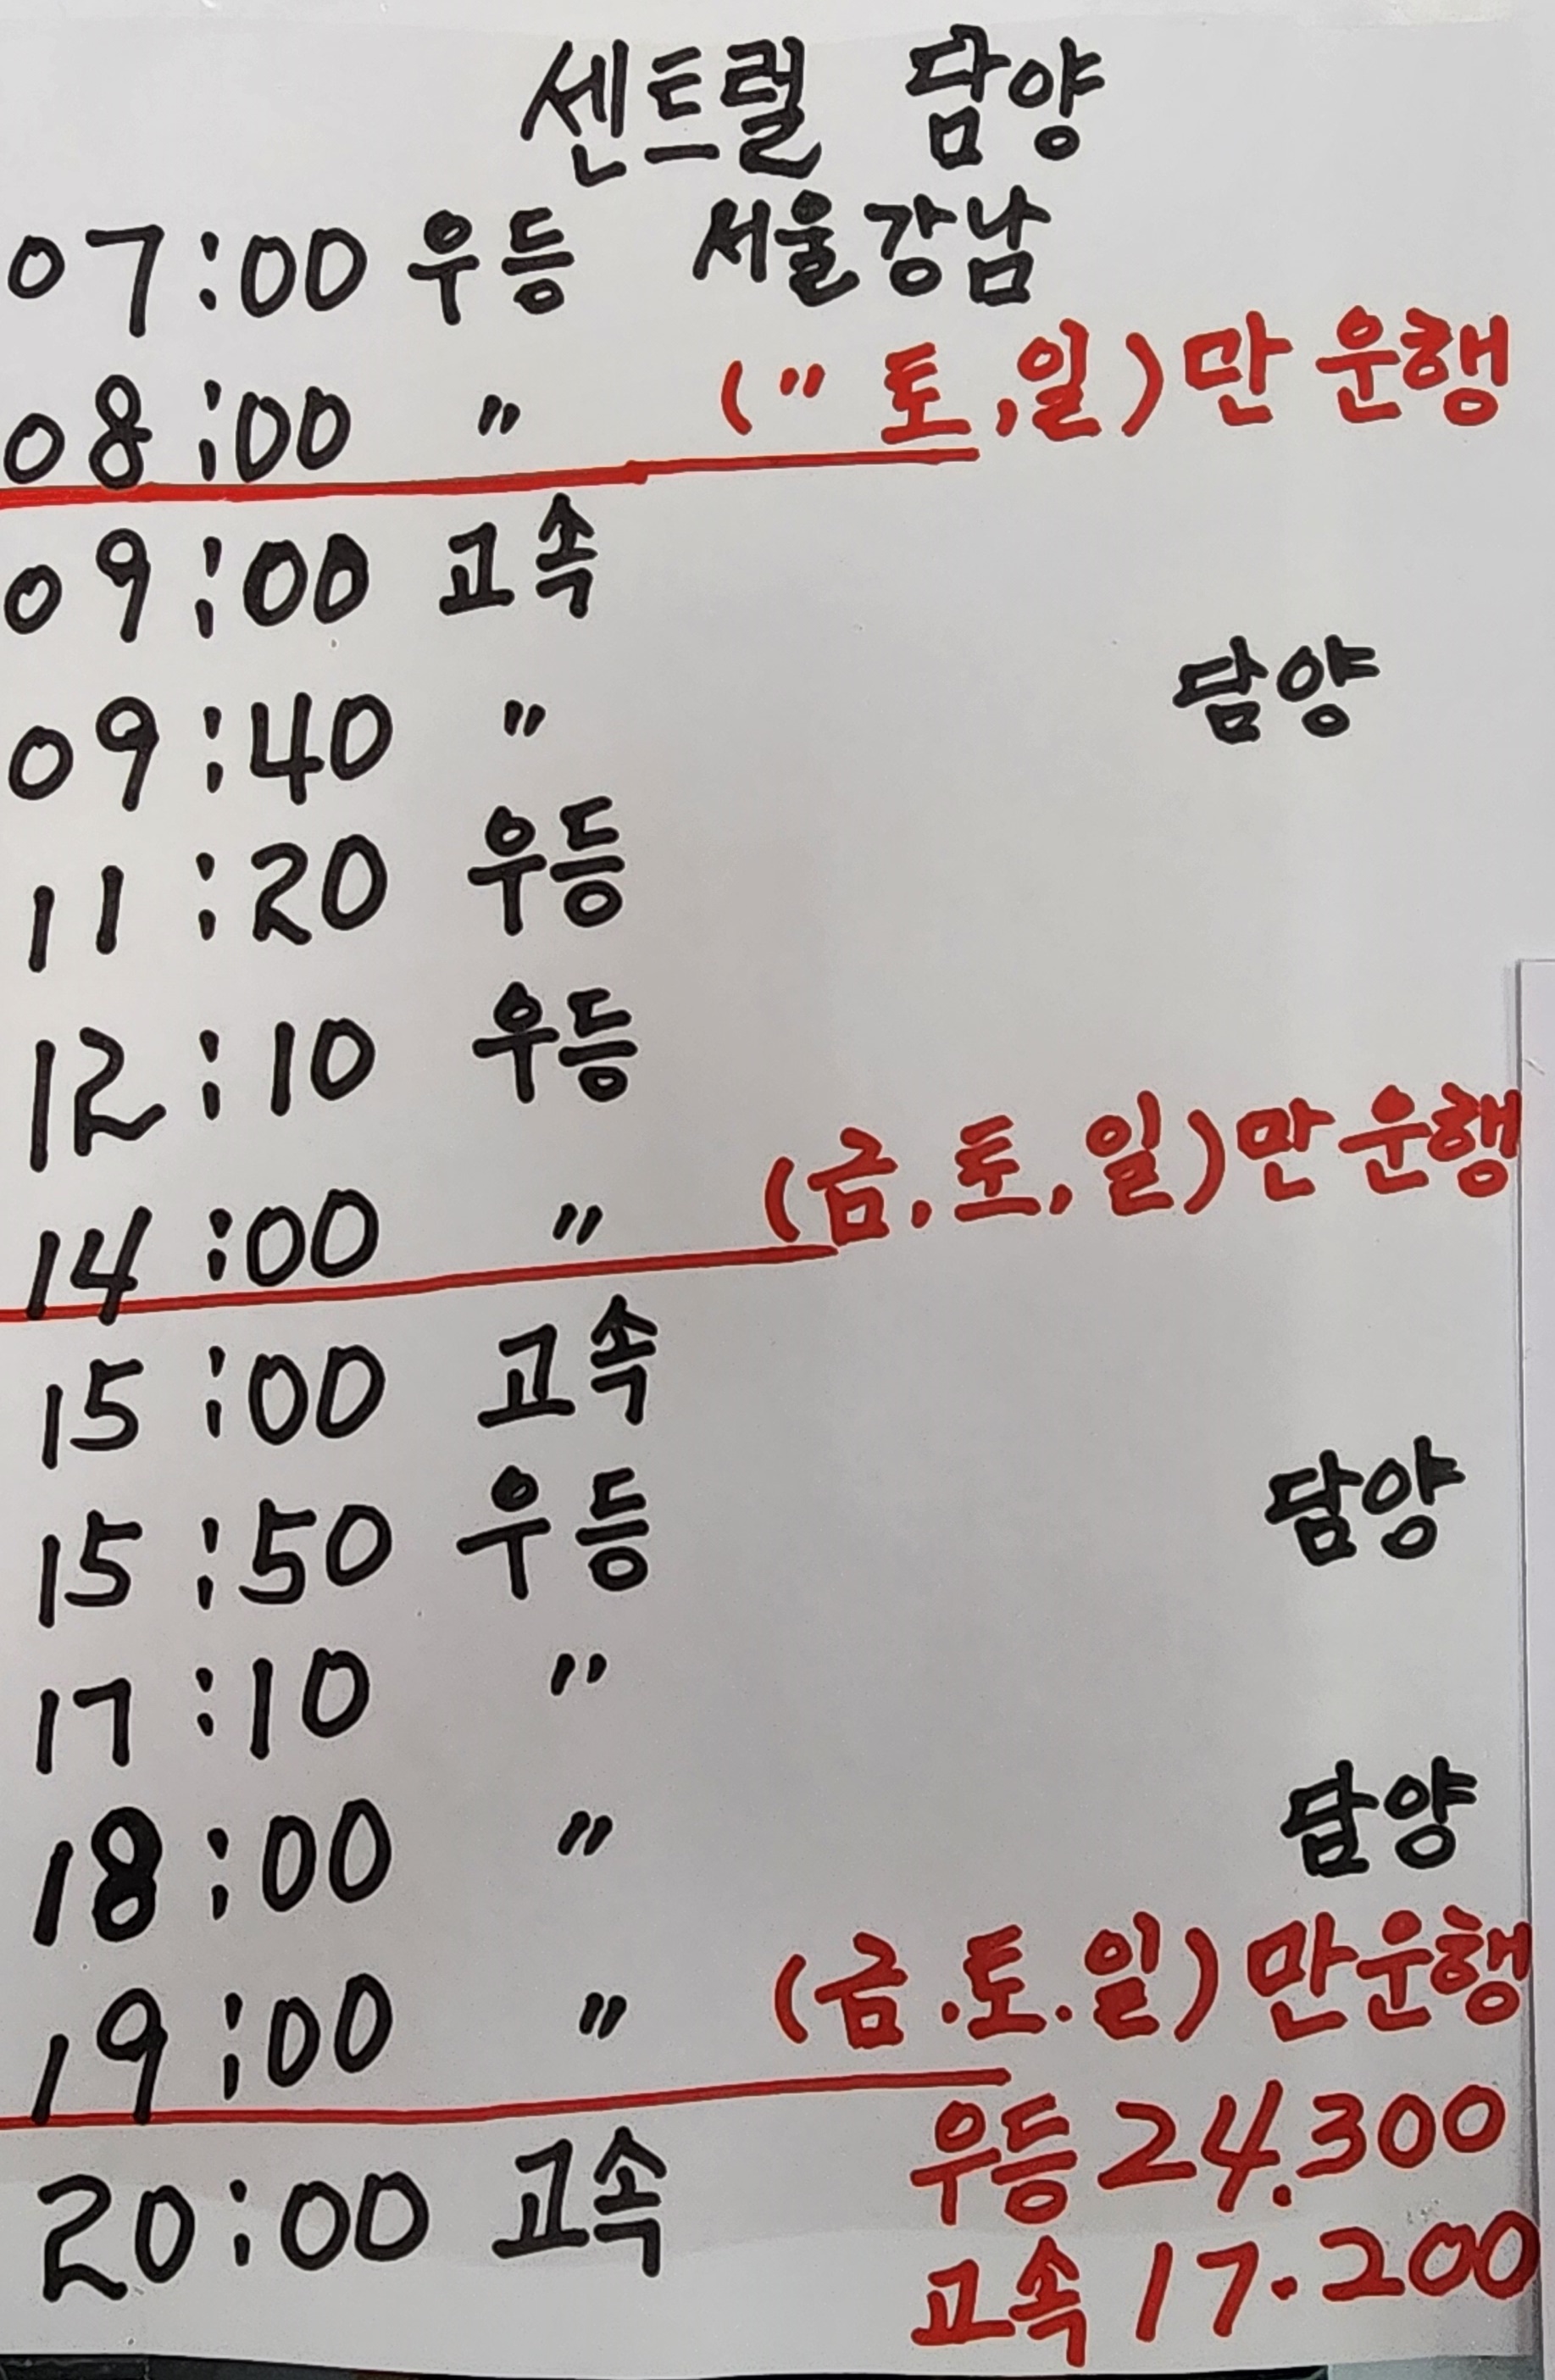 센트럴 담양
07:00 우등 서울강남
08:00 〃 (〃 토,일)만 운행
09:00 고속
09:40 〃 담양
11:20 우등
12:10 우등
14:00 〃 (금.토,일)만 운행
15:00 고속
15:50 우등 담양
17:10 〃
18:00 〃 담양
19:00 〃 (금.토.일)만운행
우등 24.300
20:00 고속
고속 17.200